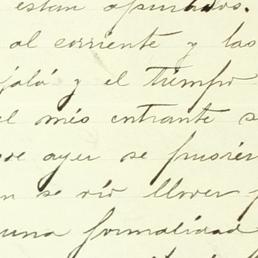 estan apurados.
al corriente y las
jalá y el tiempo
el més entrante s
ue ayer se pusier
n se vió llover
una formalidad